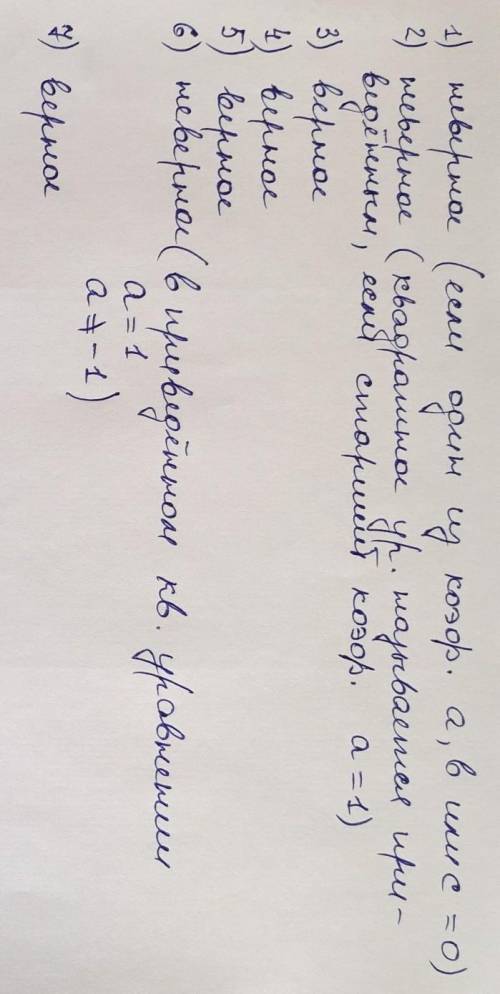 1) неверное (если один из коэф. а, в или с = 0)
2) неверное (квадратное ур. называется при-
ведённым, если старший коэф. а = 1)
3) верное
4) верное
5) верное
6) неверное (в приведённом кв. уравнении
а = 1
а ≠ - 1)
7) верное